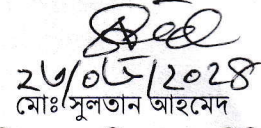 ২৬/০৮/২০২৪
মোঃ সুলতান আহমেদ